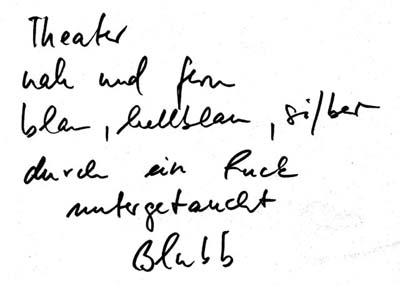 Theater
nah und fern
blau, hellblau, silber
durch ein Ruck
untergetaucht
Blubb